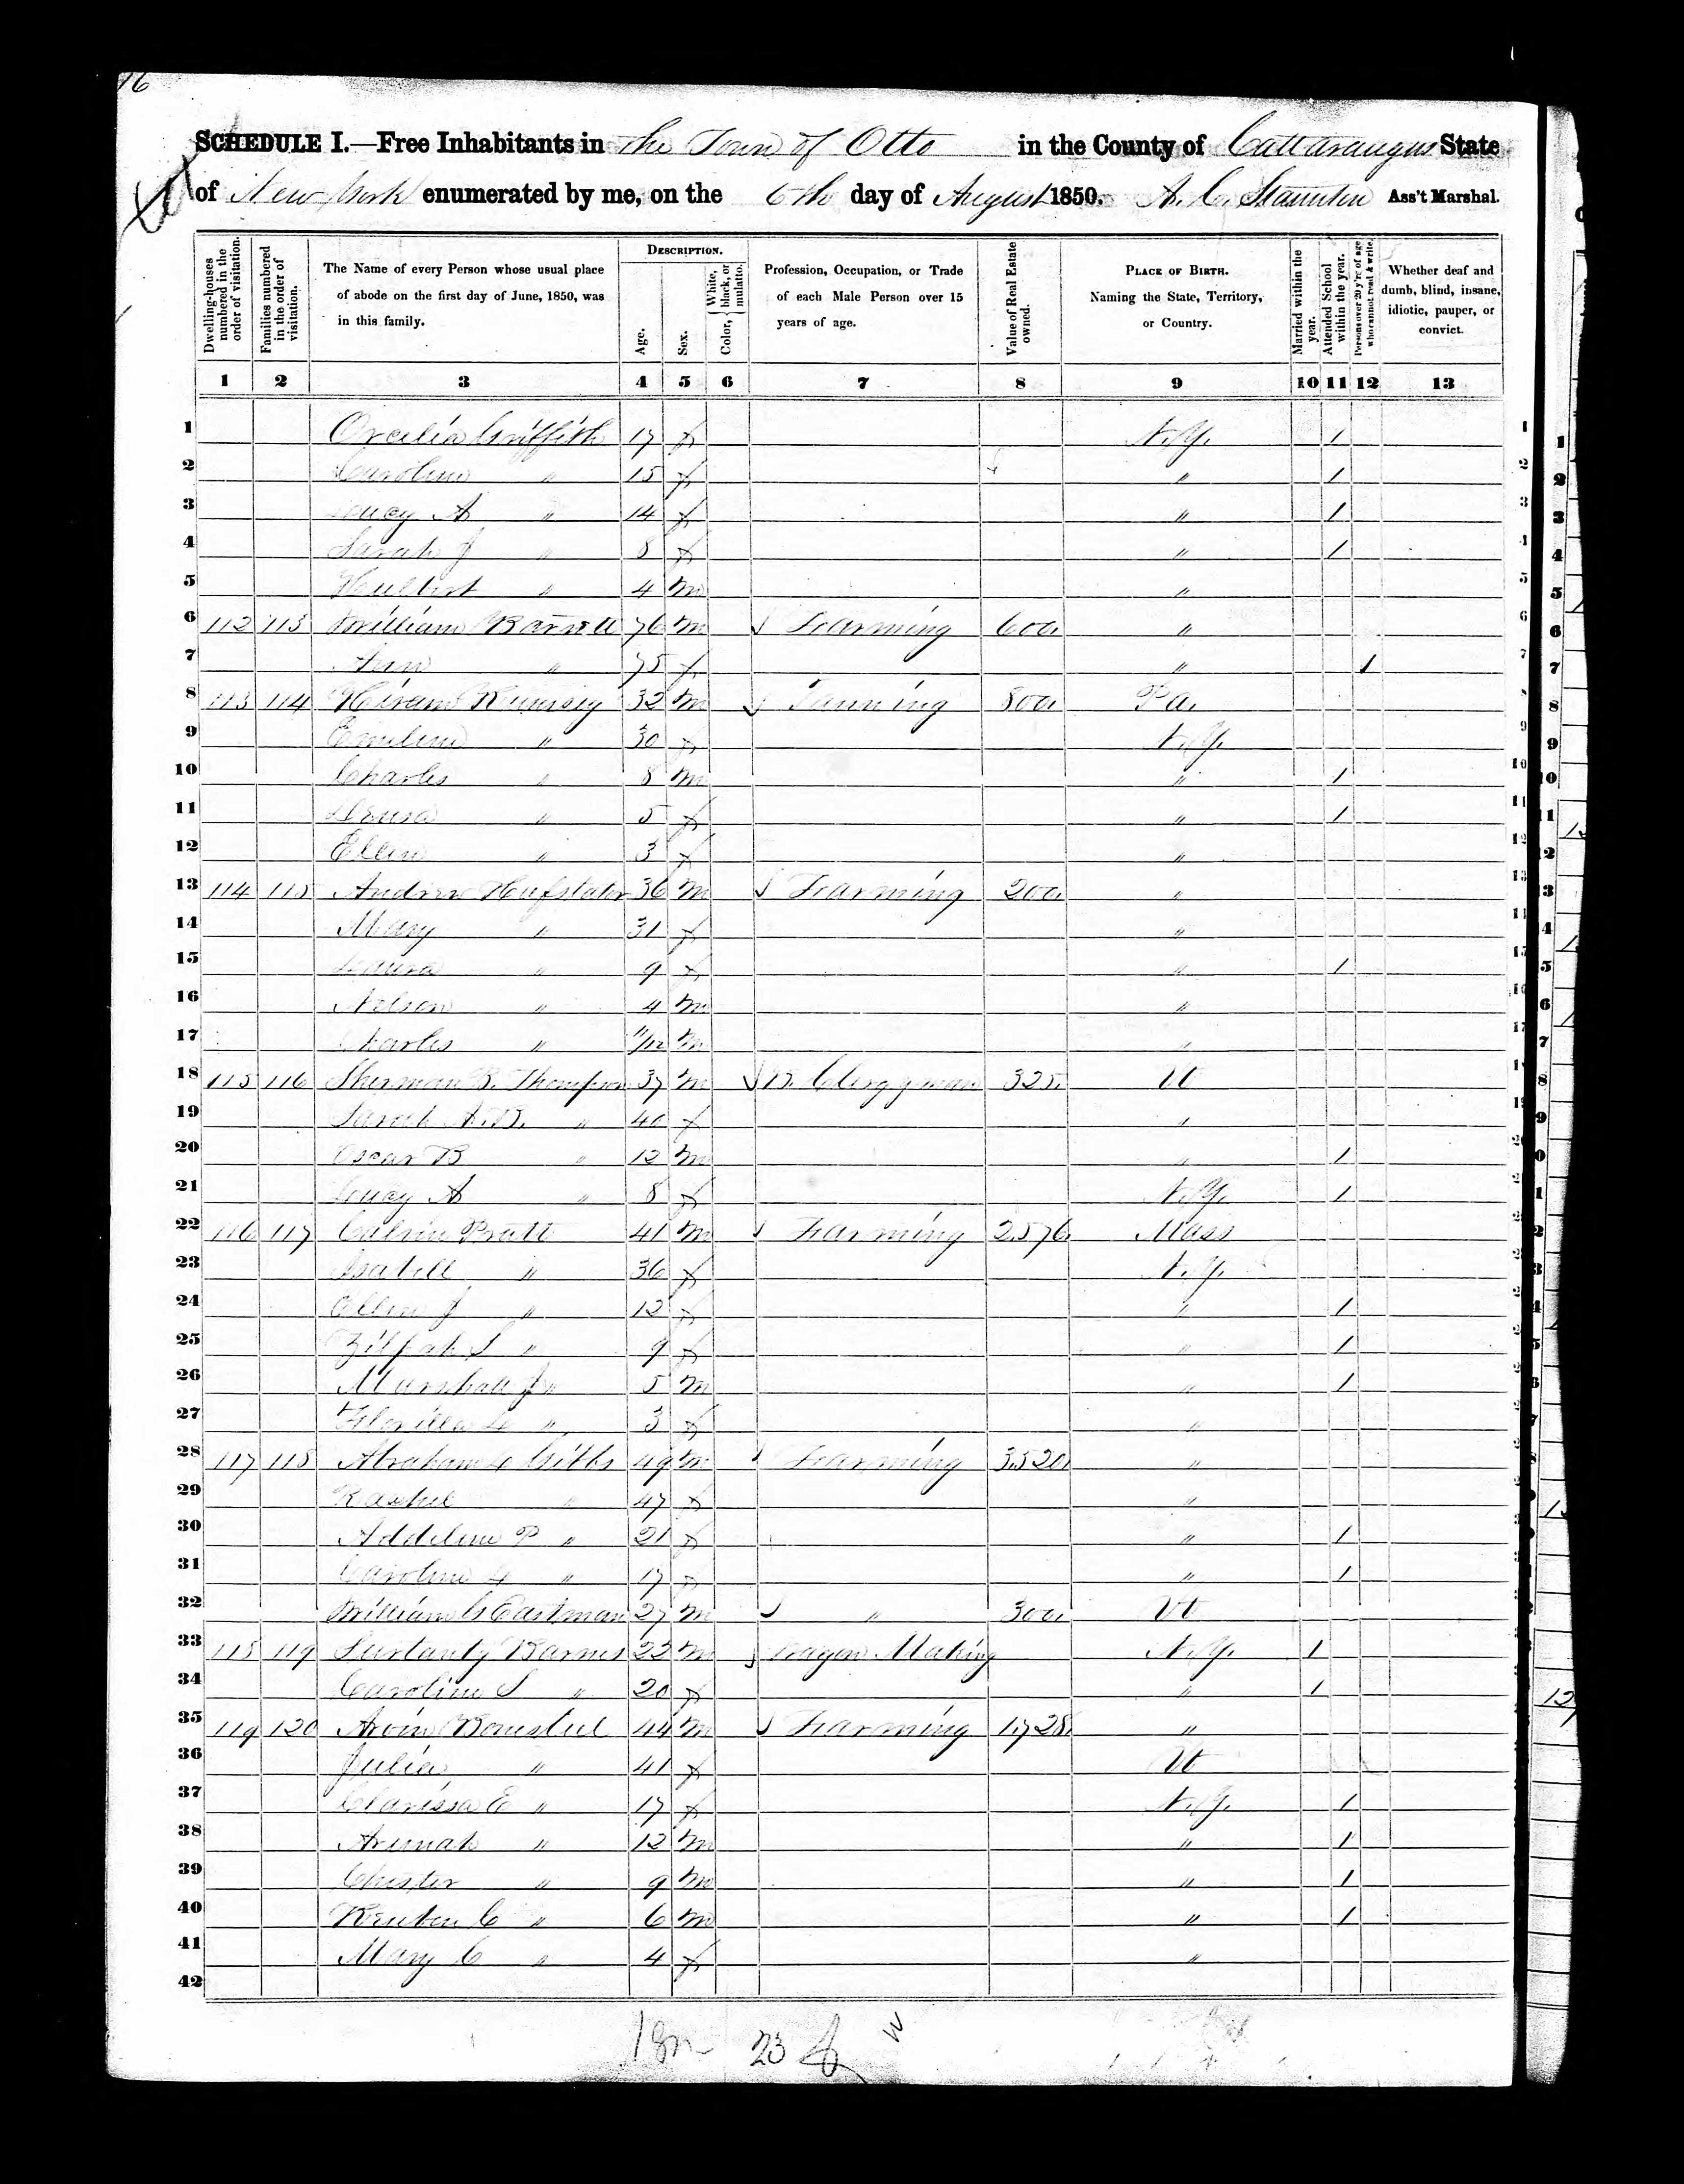 16
SCHEDULE I.—Free Inhabitants in the Town of Otto in the County of Cattaraugus State
of New York enumerated by me, on the 6th day of August 1850. A. C. Staunton Ass't Marshal.
Dwelling-houses numbered in the order of visitation.
Families numbered in the order of visitation.
The Name of every Person whose usual place of abode on the first day of June, 1850, was in this family.
DESCRIPTION.
Age.
Sex.
Color, { White, black, or mulatto.
Profession, Occupation, or Trade of each Male Person over 15 years of age.
Value of Real Estate owned.
PLACE OF BIRTH. Naming the State, Territory, or Country.
Married within the year.
Attended School within the year.
Persons over 20 y'rs of age who cannot read & write.
Whether deaf and dumb, blind, insane, idiotic, pauper, or convict.
1 2 3 4 5 6 7 8 9 10 11 12 13
1 Orcelia Griffith 17 f N.Y. 1
2 Caroline " 15 f " 1
3 Lucy A " 14 f " 1
4 Sarah J " 8 f " 1
5 Hulbert " 4 m "
6 112 113 William Barnell 76 m Farming 600 "
7 Ann " 75 f " 1
8 113 114 Hiram Rumsey 32 m Tanning 800 Pa.
9 Emeline " 30 f N.Y.
10 Charles " 8 m " 1
11 " 5 f " 1
12 Ellen " 3 f "
13 114 115 Andrew Hufstater 36 m Farming 200 "
14 Mary " 31 f "
15 Laura " 9 f " 1
16 Nelson " 4 m "
17 Charles " 11/12 m "
18 115 116 Sherman B. Thompson 37 m B. Clergyman 325 Vt
19 Sarah A.B. " 40 f "
20 Oscar B " 12 m " 1
21 Lucy A " 8 f N.Y. 1
22 116 117 Calvin Pratt 41 m Farming 2,576 Mass
23 Isabell " 36 f N.Y.
24 J " 12 f " 1
25 Zilpah S " 9 f " 1
26 Marshall J " 5 m " 1
27 Florilla L " 3 f "
28 117 118 Abraham L Gibbs 49 m Farming 3,520 "
29 Rachel " 47 f "
30 Addeline P " 21 f " 1
31 Caroline L " 17 f " 1
32 William G Eastman 27 m " 300 Vt
33 118 119 Barnes 22 m Wagon Making N.Y. 1
34 Caroline S " 20 f " 1
35 119 120 Arvin Bonesteel 44 m Farming 1,728 "
36 Julia " 41 f Vt
37 Clarissa E " 17 f N.Y. 1
38 " 12 m " 1
39 Chester " 9 m " 1
40 Reuben C " 6 m " 1
41 Mary C " 4 f "
42
18m 23 f